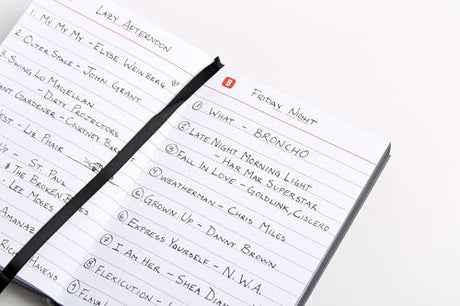 LAZY AFTERNOON
1. MY MY MY - ELYSE WEINBERG
2. OUTER SPACE - JOHN GRANT
3. SWING LO MAGELLAN
- DIRTY PROJECTORS
GARDENER - COURTNEY
- LIZ PHAIR
UP - ST. PAUL
& THE BROKEN BONES
- LEE MOSES
AMANAZ
RICHIE HAVENS
8
FRIDAY NIGHT
1 WHAT - BRONCHO
2 LATE NIGHT MORNING LIGHT
- HAR MAR SUPERSTAR
3 FALL IN LOVE - GOLDLINK, CISCERO
4 WEATHERMAN - CHRIS MILES
6 GROWN UP - DANNY BROWN
6 EXPRESS YOURSELF - N.W.A.
7 I AM HER - SHEA
8 FLEXICUTION -
9